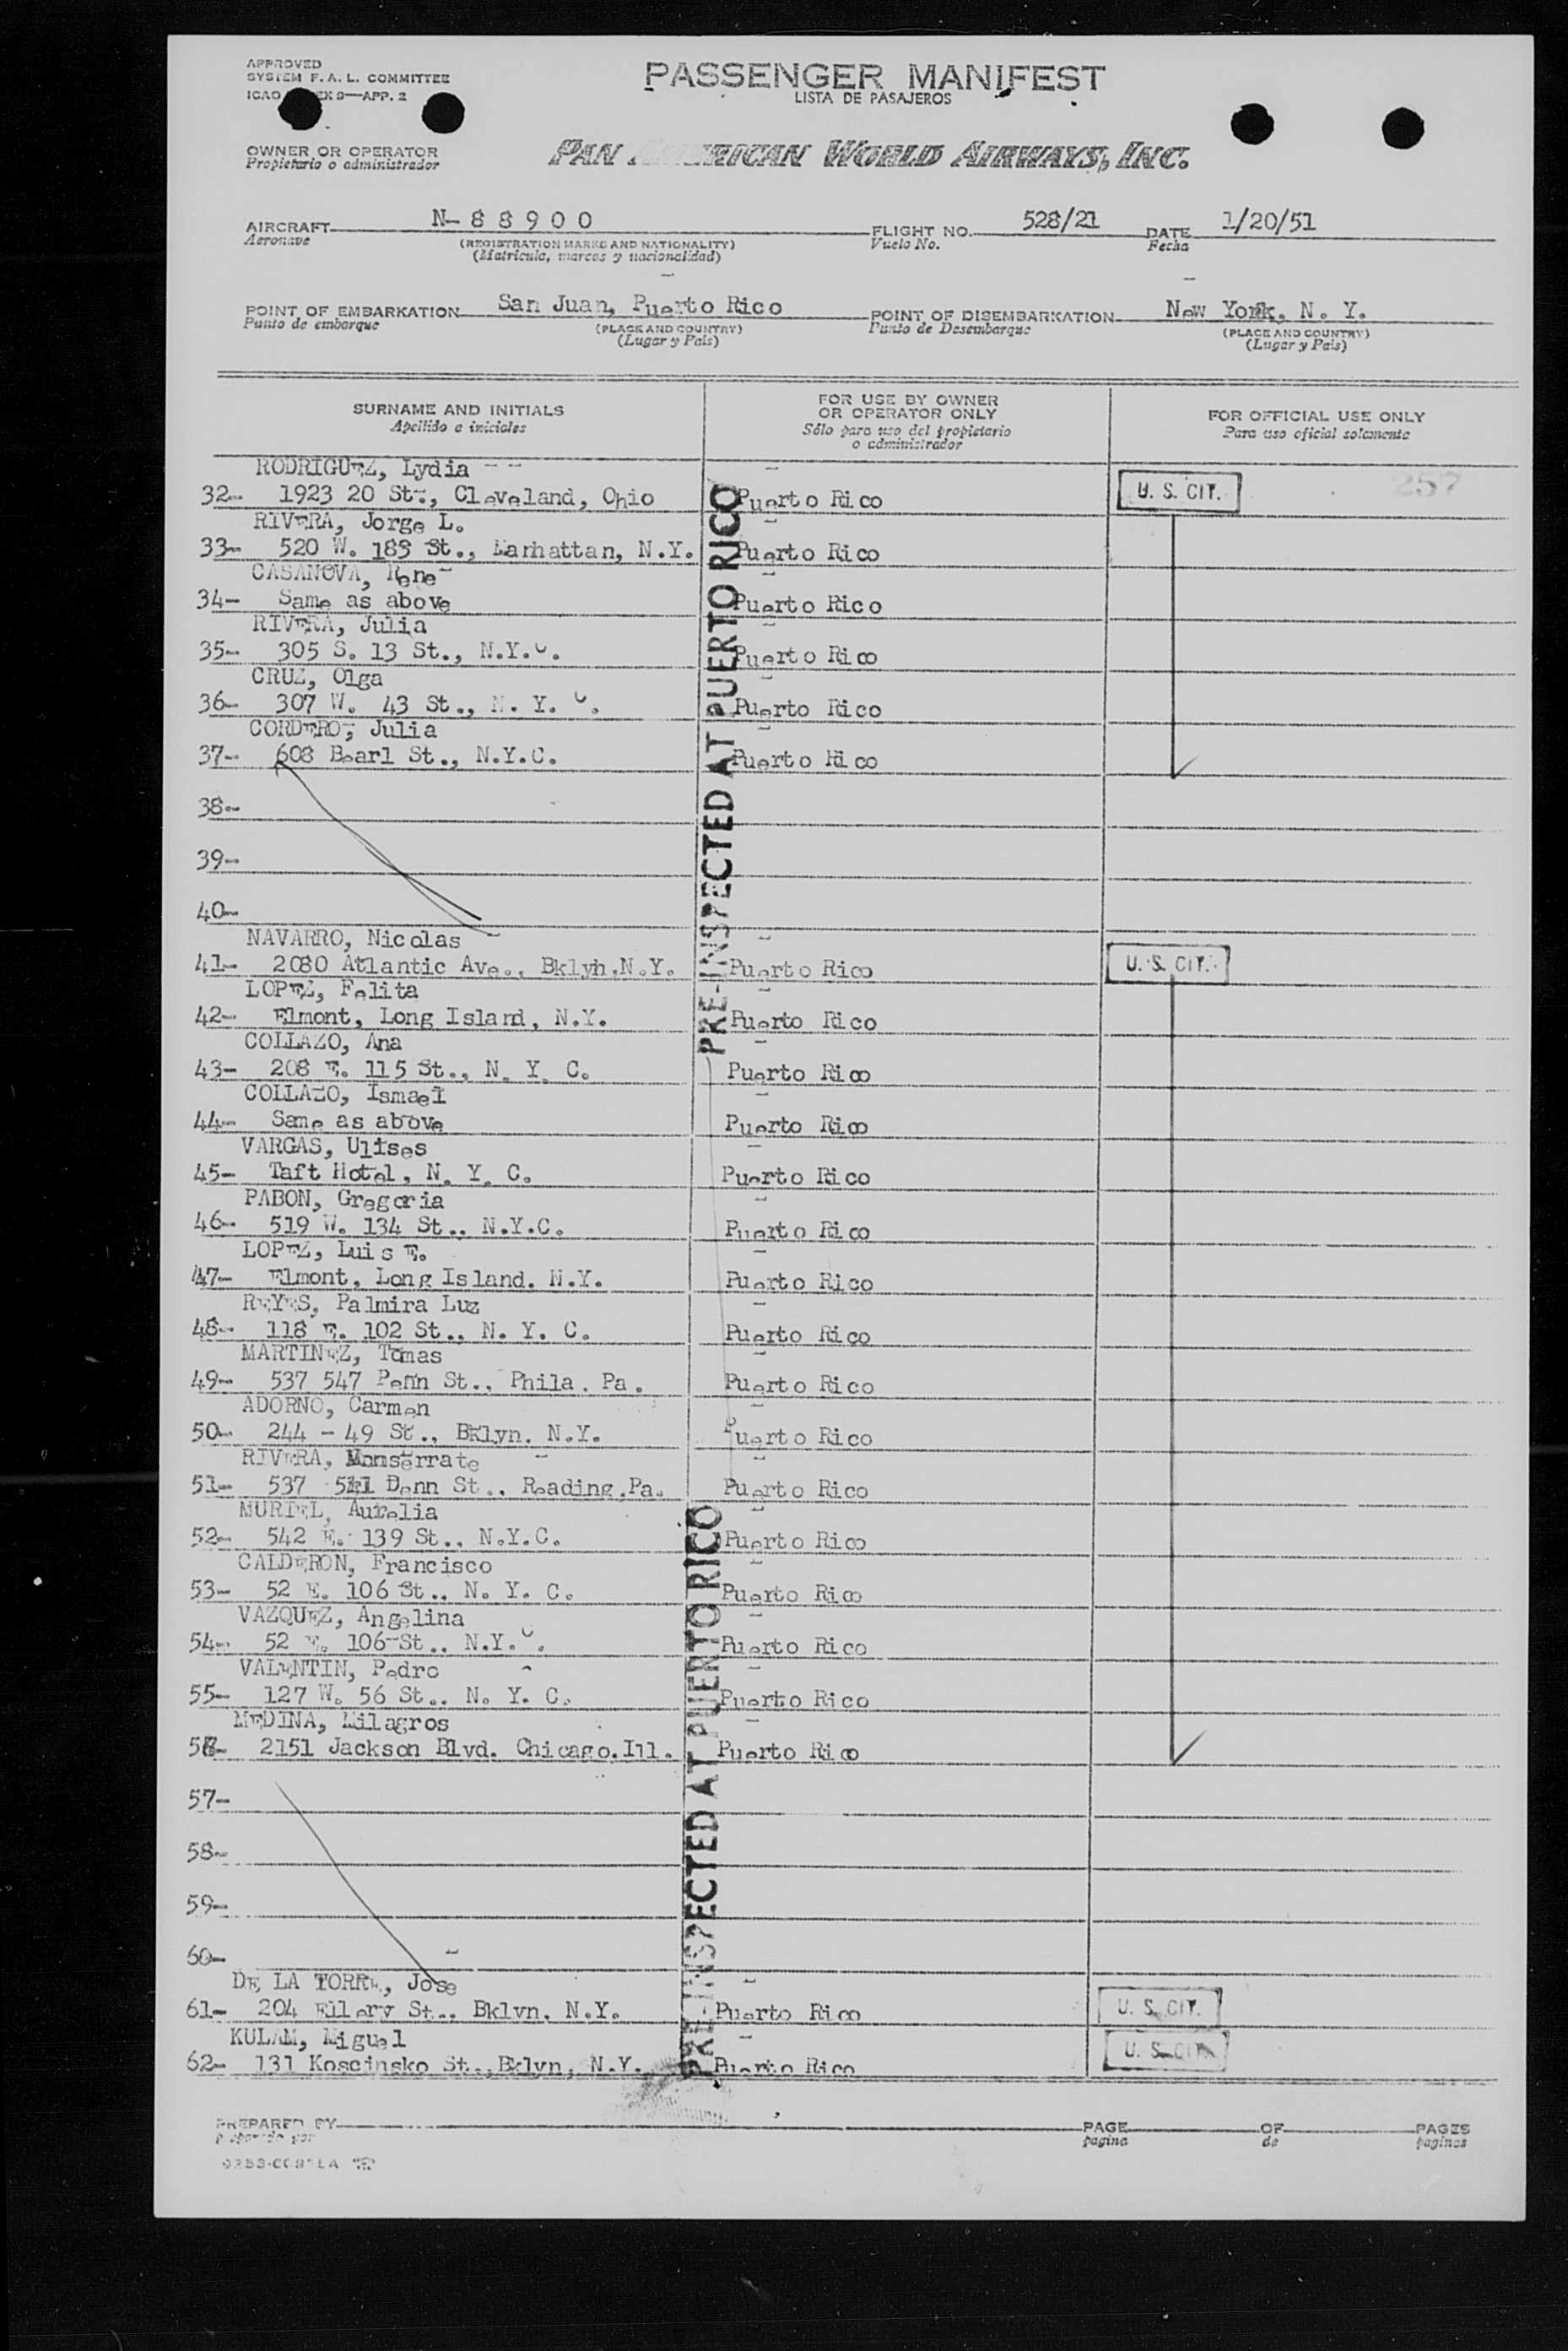 APPROVED
SYSTEM F. A. L. COMMITTEE
ICAO EX 9—APP. 2
PASSENGER MANIFEST
LISTA DE PASAJEROS
OWNER OR OPERATOR
Propietario o administrador
PAN AMERICAN WORLD AIRWAYS, INC.
AIRCRAFT N- 8 8 9 0 0 FLIGHT NO. 528/21 DATE 1/20/51
Aeronave (REGISTRATION MARKS AND NATIONALITY) Vuelo No. Fecha
(Matricula, marcas y nacionalidad)
POINT OF EMBARKATION San Juan, Puerto Rico POINT OF DISEMBARKATION New York, N. Y.
Punto de embarque (PLACE AND COUNTRY) Punto de Desembarque (PLACE AND COUNTRY)
(Lugar y Pais) (Lugar y Pais)
SURNAME AND INITIALS FOR USE BY OWNER OR OPERATOR ONLY FOR OFFICIAL USE ONLY
Apellido e iniciales Sólo para uso del propietario o administrador Para uso oficial solamente
RODRIGUEZ, Lydia
32- 1923 20 St., Cleveland, Ohio Puerto Rico U. S. CIT. 257
RIVERA, Jorge L.
33- 520 W. 183 St., Manhattan, N.Y. Puerto Rico
CASANOVA, Rene
34- Same as above Puerto Rico
RIVERA, Julia
35- 305 S. 13 St., N.Y.C. Puerto Rico
CRUZ, Olga
36- 307 W. 43 St., N. Y. C. Puerto Rico
CORDERO, Julia
37- 608 Bearl St., N.Y.C. Puerto Rico
38-
39-
40-
PRE-INSPECTED AT PUERTO RICO
NAVARRO, Nicolas
41- 2080 Atlantic Ave., Bklyh.N.Y. Puerto Rico U. S. CIT.
LOPEZ, Felita
42- Elmont, Long Island, N.Y. Puerto Rico
COLLAZO, Ana
43- 208 E. 115 St., N. Y. C. Puerto Rico
COLLAZO, Ismael
44- Same as above Puerto Rico
VARGAS, Ulises
45- Taft Hotel, N. Y. C. Puerto Rico
PABON, Gregoria
46- 519 W. 134 St., N.Y.C. Puerto Rico
LOPEZ, Luis E.
47- Elmont, Long Island. N.Y. Puerto Rico
REYES, Palmira Luz
48- 118 E. 102 St., N. Y. C. Puerto Rico
MARTINEZ, Tomas
49- 537 547 Penn St., Phila. Pa. Puerto Rico
ADORNO, Carmen
50- 244 - 49 St., Bklyn. N.Y. Puerto Rico
RIVERA, Monserrate
51- 537 541 Denn St., Reading.Pa. Puerto Rico
MURIEL, Aurelia
52- 542 E. 139 St., N.Y.C. Puerto Rico
CALDERON, Francisco
53- 52 E. 106 St., N. Y. C. Puerto Rico
VAZQUEZ, Angelina
54- 52 E. 106 St., N.Y.C. Puerto Rico
VALENTIN, Pedro
55- 127 W. 56 St., N. Y. C. Puerto Rico
MEDINA, Milagros
56- 2151 Jackson Blvd. Chicago.Ill. Puerto Rico
57-
58-
59-
60-
PRE-INSPECTED AT PUERTO RICO
DE LA TORRE, Jose
61- 204 Ellery St., Bklyn. N.Y. Puerto Rico U. S. CIT.
KULAM, Miguel
62- 131 Koscinsko St., Bklyn, N.Y. Puerto Rico U. S. CIT.
PREPARED BY PAGE OF PAGES
Preparado por pagina de paginas